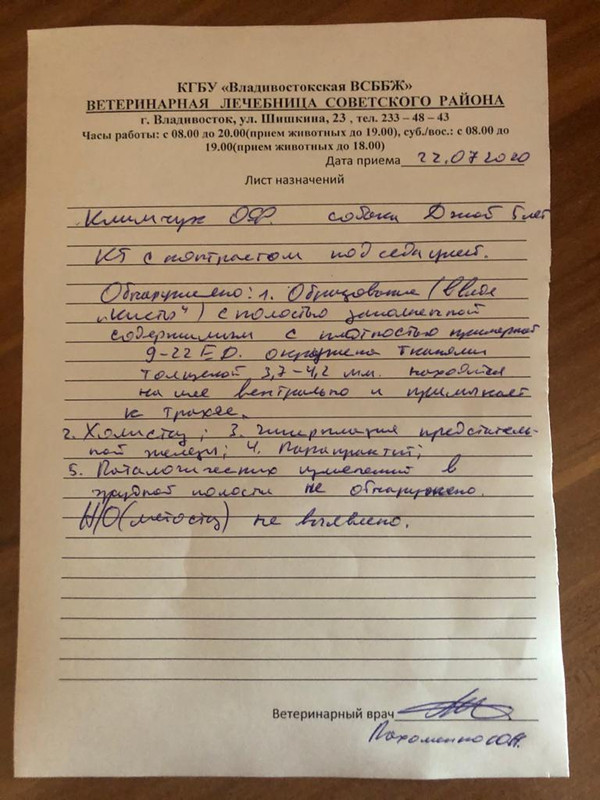 КГБУ «Владивостокская ВСББЖ»
ВЕТЕРИНАРНАЯ ЛЕЧЕБНИЦА СОВЕТСКОГО РАЙОНА
г. Владивосток, ул. Шишкина, 23 , тел. 233 – 48 – 43
Часы работы: с 08.00 до 20.00(прием животных до 19.00), суб./вос.: с 08.00 до
19.00(прием животных до 18.00)
Дата приема 22.07 2020
Лист назначений
Климчук О.Ф. собака Джой 5 лет
КТ с контрастом под седацией.
Обнаружено: 1. Образование (в виде
"кисты") с полостью заполненной
содержимым с плотностью примерной
9-22 ЕД. окружена тканями
толщиной 3,7-4,2 мм. находится
на шее вентрально и примыкает
к трахее.
2. Холистаз; 3. Гиперплазия предстатель-
ной железы; 4. Парапроктит;
5. Патологических изменений в
грудной полости не обнаружено.
Н/О (метостаз) не выявлено.
Ветеринарный врач
Пахоменко